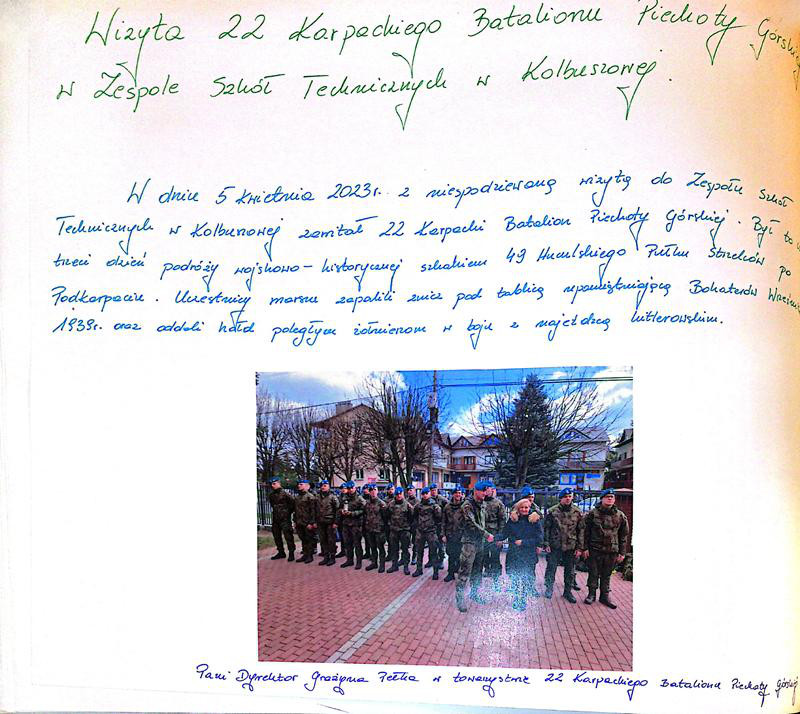 Wizyta 22 Karpackiego Batalionu Piechoty Górskiej
w Zespole Szkół Technicznych w Kolbuszowej.
W dniu 5 kwietnia 2023r. z niespodziewaną wizytą do Zespołu Szkół
Technicznych w Kolbuszowej zawitał 22 Karpacki Batalion Piechoty Górskiej. Był to
trzeci dzień podróży wojskowo-historycznej szlakiem 49 Huculskiego Pułku Strzelców po
Podkarpaciu. Uczestnicy marszu zapalili znicz pod tablicą upamiętniającą Bohaterów Września
1939r. oraz oddali hołd poległym żołnierzom w boju z najeźdzcą hitlerowskim.
Pani Dyrektor Grażyna Pełka w towarzystwie 22 Karpackiego Batalionu Piechoty Górskiej